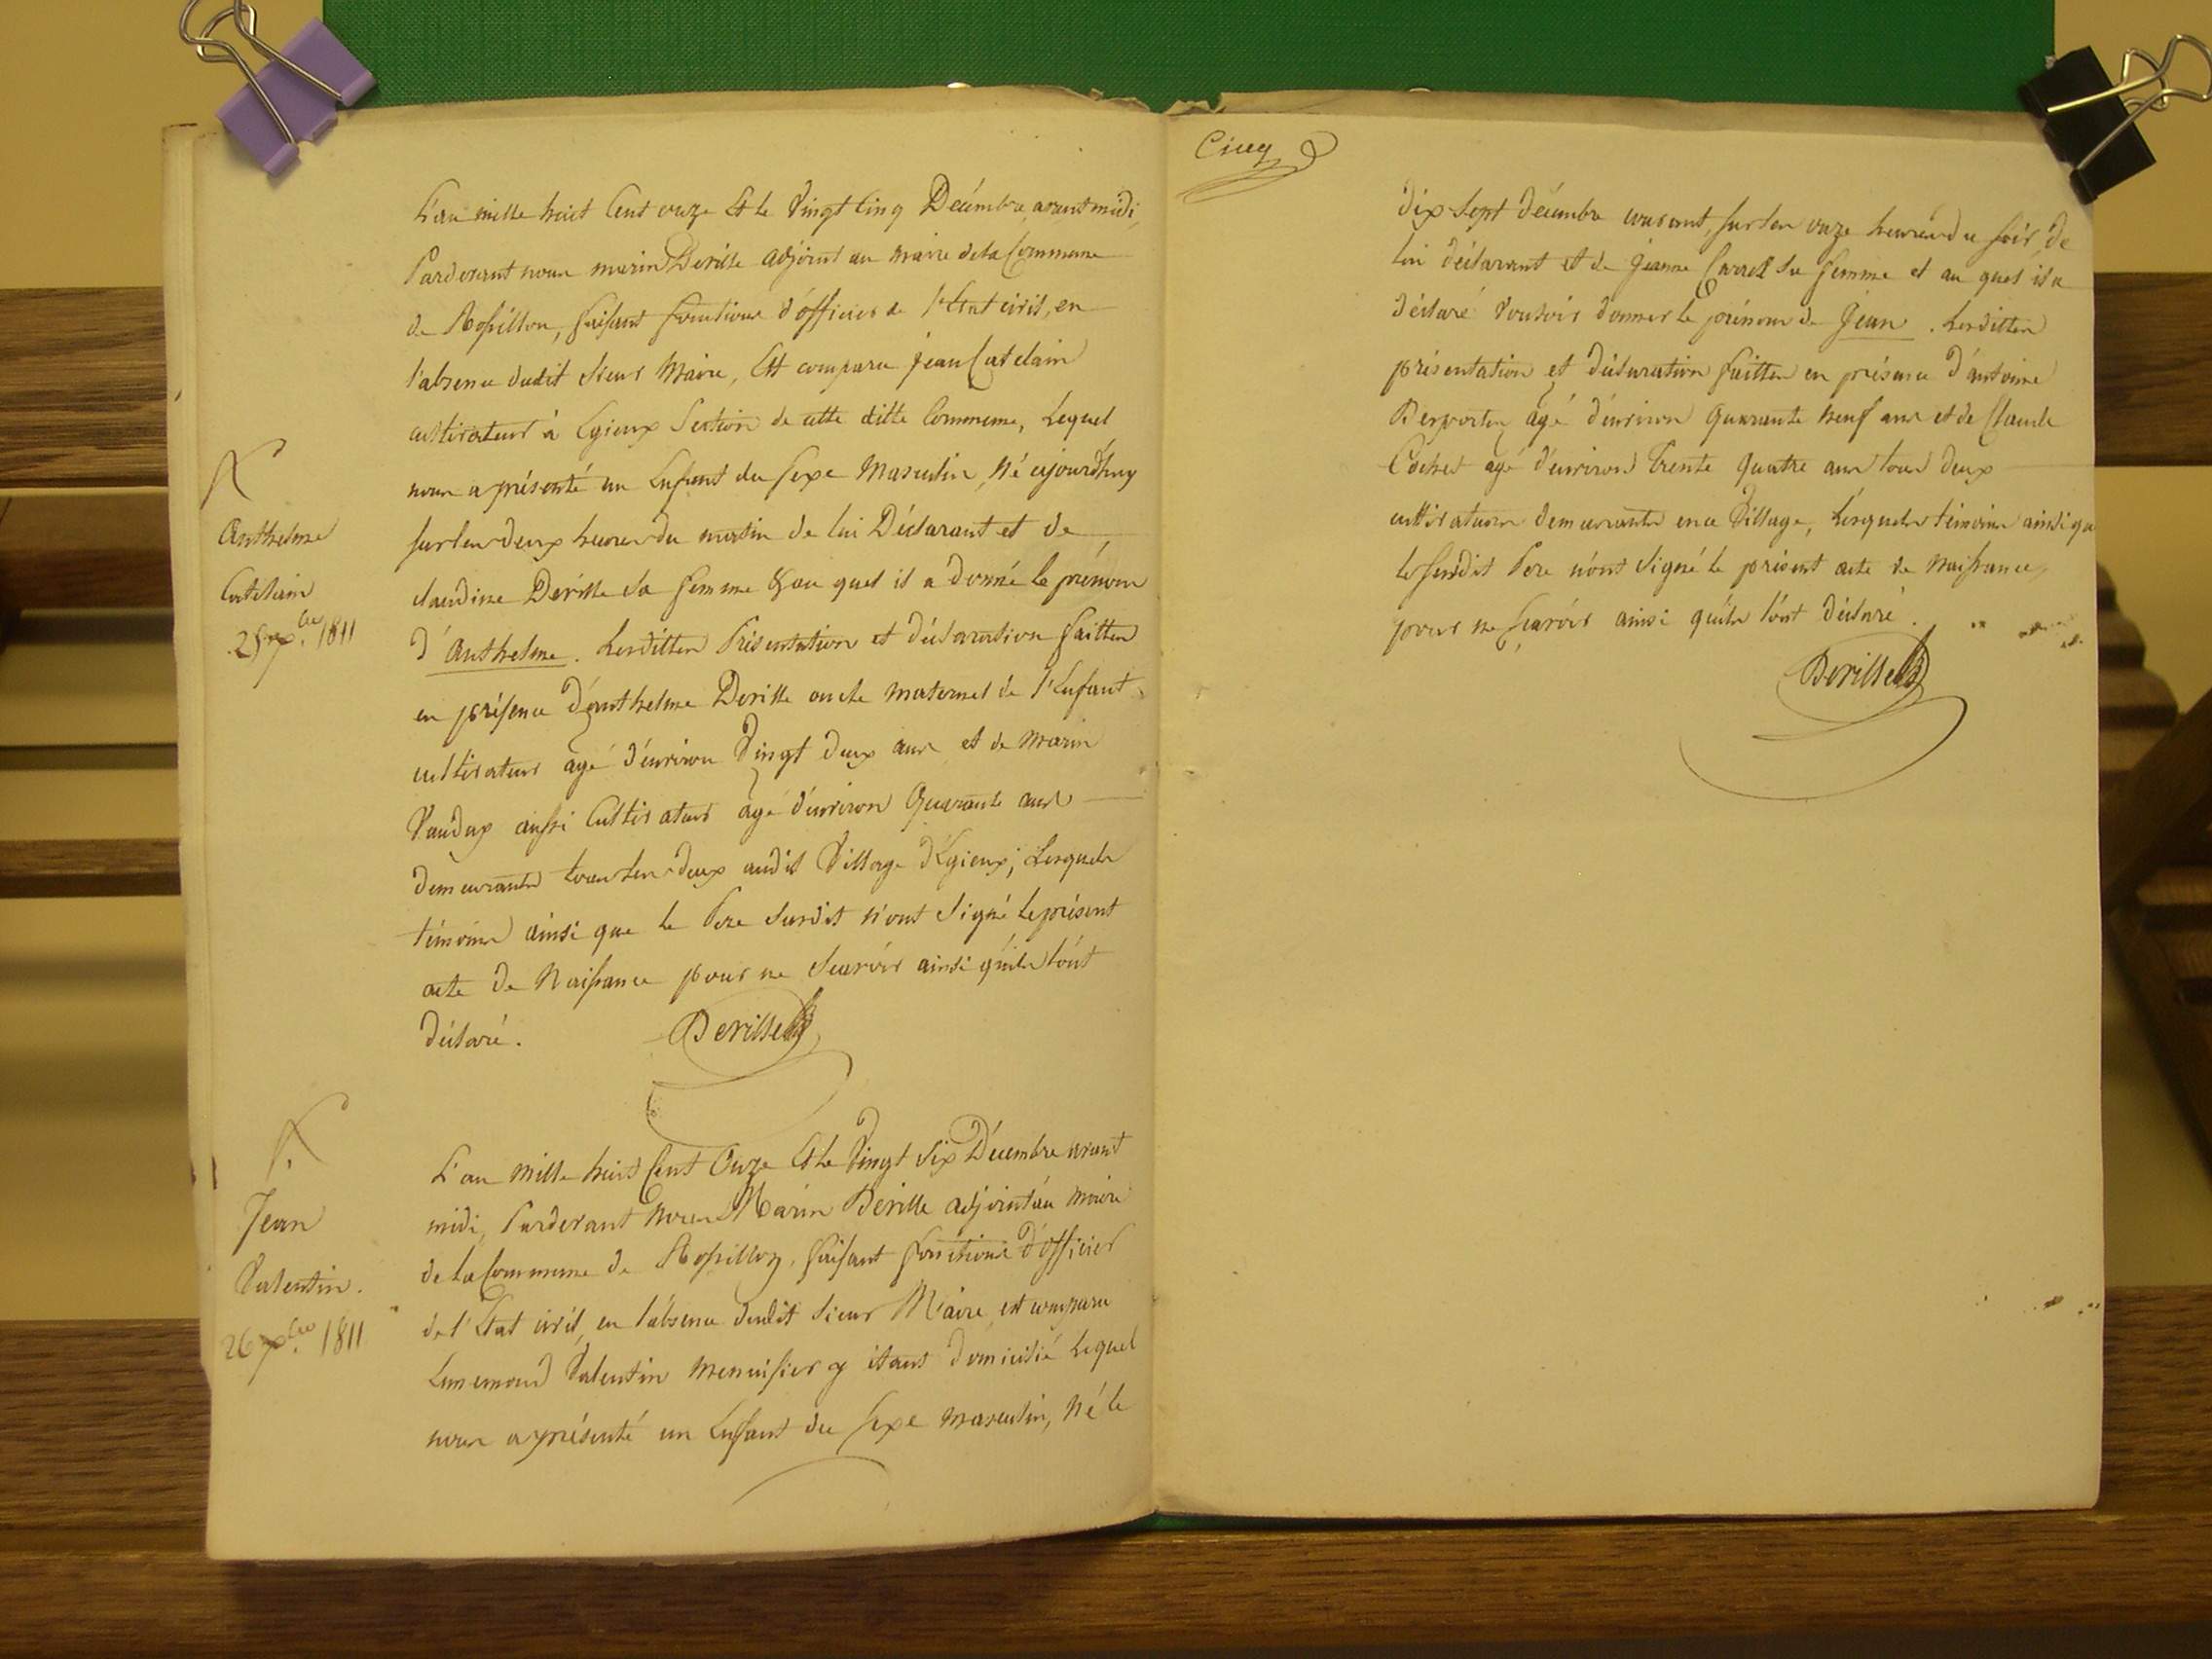 L'an mille huit Cent onze Et le Vingt Cinq Décembre, avant midi,
Pardevant nous marin Deville adjoint au maire de la Commune
de Rossillon, faisant fonctions d'officier de l'Etat civil, en
l'absence dudit Sieur Maire, Est comparu jean Catelain
cultivateur à Egieux Section de cette ditte Commune, Lequel
nous a présenté un Enfant du sexe Masculin, Né aujourd'huy
sur les deux heures du matin de lui Déclarant et de
claudine Deville sa femme & au quel il a donné le prénom
d'Anthelme. Lesdittes Présentation et déclaration faittes
en présence d'anthelme Deville oncle maternel de l'Enfant,
cultivateur agé d'environ Vingt deux ans et de Marin
Vaudup aussi Cultivateur agé d'environ Quarante ans
demeurants tous les deux audit Village d'Egieux; Lesquels
témoins ainsi que le Pere Susdit n'ont Signé le présent
acte de Naissance pour ne Scavoir ainsi qu'ils l'ont
Déclaré.
Deville
Anthelme
Catelain
25 xbre 1811
L'an Mille huit Cent Onze Et le Vingt Six Décembre avant
midi, Pardevant Nous Marin Deville adjoint au maire
de la Commune de Rossillon, faisant fonctions d'officier
de l'Etat civil, en l'absence dudit Sieur Maire, est comparu
Valentin Menuisier y étant domicilié Lequel
nous a présenté un Enfant du sexe Masculin, Né le
Jean
Valentin.
26 xbre 1811
Cinq
dix sept décembre courant, sur les onze heures du soir, de
lui déclarant et de Jeanne Carrel sa femme et au quel il a
déclaré Vouloir donner le prénom de Jean. Lesdittes
présentation et déclaration faittes en présence d'antoine
Desportes agé d'environ Quarante Neuf ans et de Claude
Cochet agé d'environ Trente Quatre ans tous deux
cultivateurs demeurants en ce Village, Lesquels témoins ainsi que
le susdit Pere n'ont Signé le présent acte de Naissance,
pour ne Scavoir ainsi qu'ils l'ont déclaré.
Deville